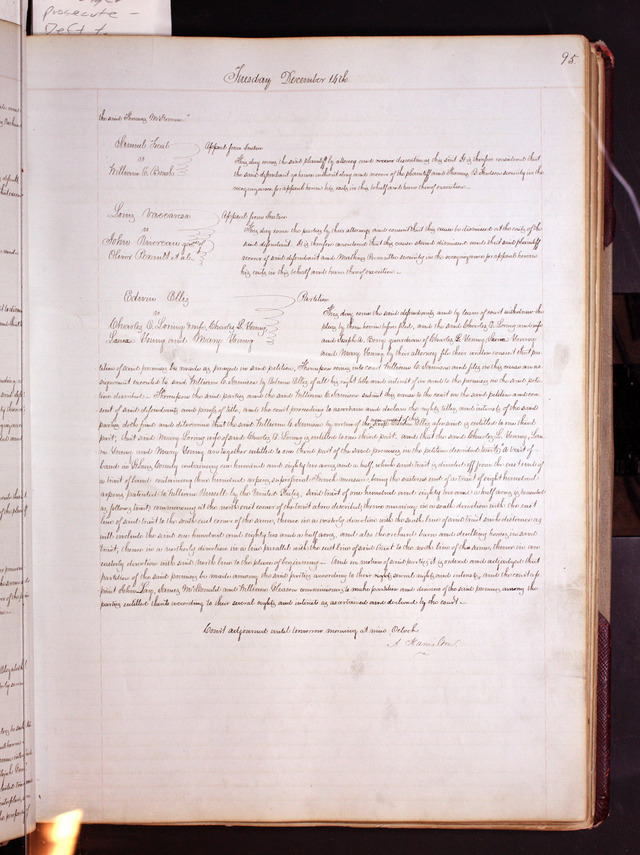 prosecute -
Deft to
95
Tuesday December 14th
the said Thomas McKenna"
Samuel
vs
William C.
Appeal from Justice
This day comes the said plaintiff by attorney and discontinues this suit It is therefore considered that
the said defendant go hence without day and recover of the plaintiff and Thomas B. security in the
recognizance for appeal herein his costs in this behalf and have thereof execution.
Louis
vs
John
Oliver et al.
Appeal from Justice
This day come the parties by their attorneys and consent that this cause be dismissed at the costs of the
said defendant. It is therefore considered that this cause stand dismissed and that said plaintiff
recover of said defendant and security in the recognizance for appeal herein
his costs in this behalf and have thereof execution.
Edwin Ellis
vs
Charles C. Loring & wife, Charles L. Young,
Lana Young and Mary Young
Partition
This day come the said defendants and by leave of court withdraw the
pleas by them herein before filed, and the said Charles C. Loring and wife
and Joseph A. guardian of Charles L. Young, Lana Young
and Mary Young by their attorney file their written consent that par-
tition of said premises be made as prayed in said petition. Thereupon comes into court William C. and files in this cause an as-
signment executed to said William C. by Edwin Ellis of all his right title and interest of in and to the premises in the said peti-
tion described. Thereupon the said parties and the said William C. submit this cause to the court on the said petition and con-
sent of said defendants and proofs of title, and the court proceeding to ascertain and declare the rights, titles, and interests of the said
parties doth find and determine that the said William C. by virtue of the assignment of the said Edwin Ellis aforesaid is entitled to one third
part; that said Mary Loring wife of said Charles C. Loring is entitled to one third part. and that the said Charles L. Young, Lan-
a Young and Mary Young are together entitled to one third part of the said premises in the petition described towit; "A tract of
land in County containing one hundred and eighty two acres and a half, which said tract is divided off from the east end of
a tract of land containing three hundred arpens, superficial French measure, being the eastern end of a tract of eight hundred
arpens patented to William by the United States, said tract of one hundred and eighty two and a half acres, is bounded
as follows towit; commencing at the north east corner of the tract above described, thence running in a south direction with the east
line of said tract to the south east corner of the same, thence in a westerly direction with the south line of said tract such distance as
will include the said one hundred and eighty two and a half acres, and also the orchard barn and dwelling house, on said
tract; thence in a northerly direction in a line parallel with the east line of said tract to the north line of the same, thence in an
easterly direction with said north line to the place of beginning. And on motion of said parties, it is ordered and adjudged that
partition of the said premises be made among the said parties according to their several rights and interests, and the court ap-
point John Lay, James McDonald and William Gleason commissioners to make partition and division of the said premises among the
parties entitled thereto according to their several rights and interests as ascertained and declared by the court.
Court adjourned until tomorrow morning at nine Oclock
A Hamilton